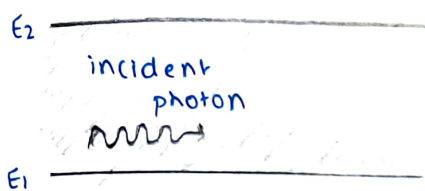 E2
incident
photon
E1